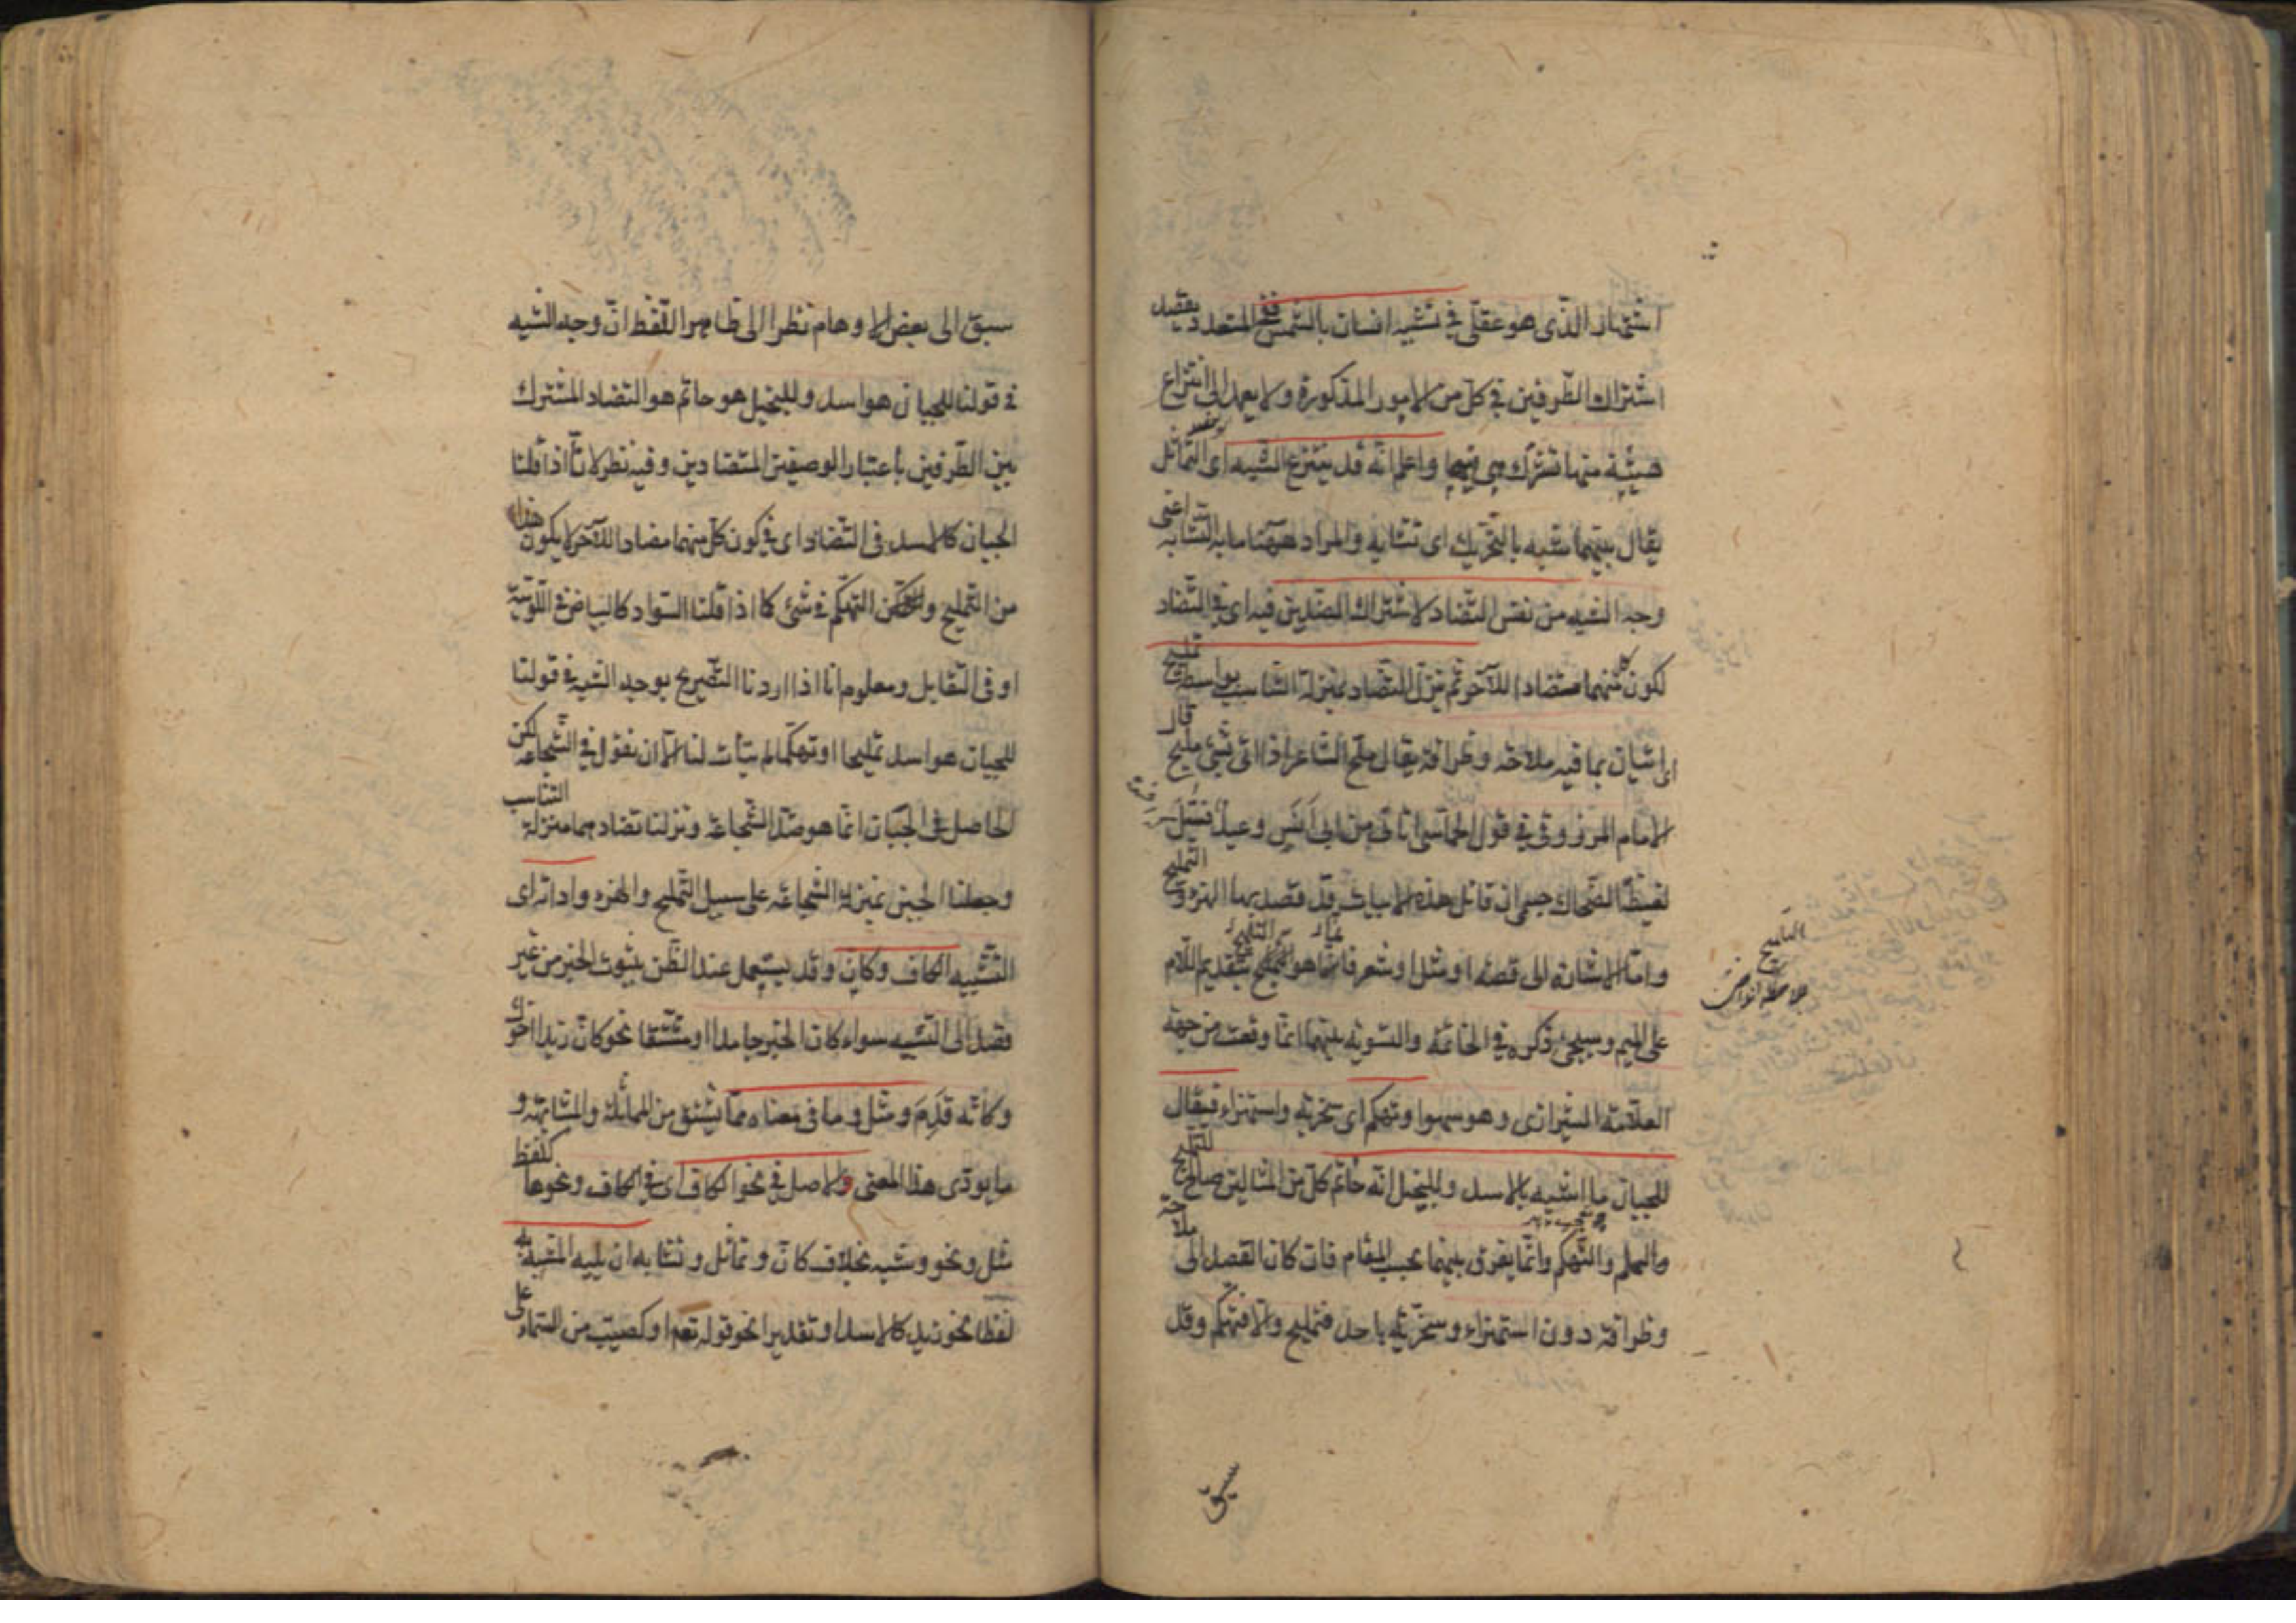 اشتهار الذى هو عقلى فى تشبيه انسان بالشمس ففى المتعدد يقصد
اشتراك الطرفين فى كل من الامور المذكورة ولا يعمد الى انتزاع
هيئة منها تشترك هى فيها واعلم انه قد ينتزع الشبه اى التماثل
يقال بينهما شبه بالتحريك اى تشابه والمراد ههنا ما به التشابه اعنى
وجه الشبه من نفس التضاد لاشتراك الضدين فيه اى فى التضاد
لكون كل منهما متضادا للآخر ثم ينزل التضاد منزلة التناسب بواسطة تمليح
اى اتيان بما فيه ملاحة وظرافة يقال ملح الشاعر اذا اتى بشئ مليح قال
الامام المرزوقى فى قول الحماسى اتانى من ابى انس وعيد فسل
لغيظة الضحاك جسمى ان قائل هذه الابيات قد قصد بها الهزؤ و التمليح
واما الاشارة الى قصة او مثل او شعر فانما هو التلميح بتقديم اللام
على الميم وسيجئ ذكره فى الخاتمة والتسوية بينهما انما وقعت من جهة
العلامة الشيرازى وهو سهو او تهكم اى سخرية واستهزاء فيقال
للجبان ما اشبهه بالاسد وللبخيل انه حاتم كل من المثالين صالح للتمليح
والتهكم وانما يفرق بينهما بحسب المقام فان كان القصد الى ملاحة
وظرافة دون استهزاء وسخرية باحد فتمليح والا فتهكم وقد
سبق
سبق الى بعض الاوهام نظرا الى ظاهر اللفظ ان وجه الشبه
فى قولنا للجبان هو اسد وللبخيل هو حاتم هو التضاد المشترك
بين الطرفين باعتبار الوصفين المتضادين وفيه نظر لانا اذا قلنا
الجبان كالاسد فى التضاد اى فى كون كل منهما مضادا للآخر لا يكون هذا
من التمليح و التهكم فى شئ كما اذا قلنا السواد كالبياض فى اللونية
او فى التقابل ومعلوم انا اذا اردنا التصريح بوجه الشبه فى قولنا
للجبان هو اسد تمليحا او تهكما لم يتأت لنا الا ان نقول فى الشجاعة لكن
الحاصل فى الجبان انما هو ضد الشجاعة ونزلنا تضادهما منزلة التناسب
وجعلنا الجبن بمنزلة الشجاعة على سبيل التمليح والهزء واداته اى
التشبيه الكاف وكان وقد يستعمل عند الظن بثبوت الخبر من غير
قصد الى التشبيه سواء كان الخبر جامدا او مشتقا نحو كان زيدا اخوك
وكانه قدم ومثل وما فى معناه مما يشتق من المماثلة والمشابهة و
ما يودى هذا المعنى والاصل فى نحو الكاف اى فى الكاف ونحوها كلفظ
مثل ونحو وشبه بخلاف كان وتماثل وتشابه ان يليه المشبه به
لفظا نحو زيد كالاسد او تقديرا نحو قوله تعم او كصيب من السماء على